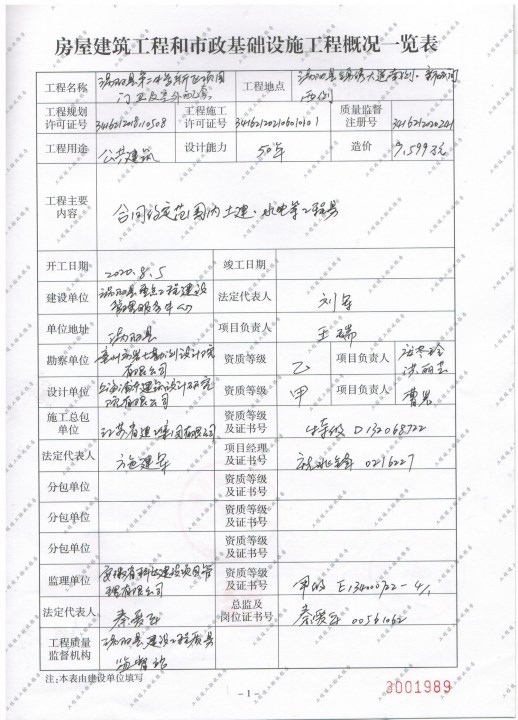 房屋建筑工程和市政基础设施工程概况一览表
工程名称
涡阳县第二中学新区项目
门卫及室外配套
工程地点
涡阳县
西侧
工程规划
许可证号
341621201810508
工程施工
许可证号
3416212021060101 01
质量监督
注册号
341621202024
工程用途
公共建筑
设计能力
50年
造价
9,599万元
工程主要
内容
合同约定范围内土建、水电等工程
开工日期
2020.8.5
竣工日期
建设单位
涡阳县重点工程建设
管理服务中心
法定代表人
刘军
单位地址
涡阳县
项目负责人
王瑞
勘察单位
有限公司
资质等级
乙
项目负责人
设计单位
建筑设计研究
院有限公司
资质等级
甲
项目负责人
曹
施工总包
单位
江苏省建集团有限公司
资质等级
及证书号
特级 D132068722
法定代表人
施建军
项目经理
及证书号
0216227
分包单位
资质等级
及证书号
分包单位
资质等级
及证书号
分包单位
资质等级
及证书号
监理单位
安徽省科建建设项目管
理有限公司
资质等级
及证书号
甲级 E134000722-4/
法定代表人
秦
总监及
岗位证书号
秦 00561062
工程质量
监督机构
涡阳县建设工程质量
监督站
注:本表由建设单位填写
- 1 -
3001989